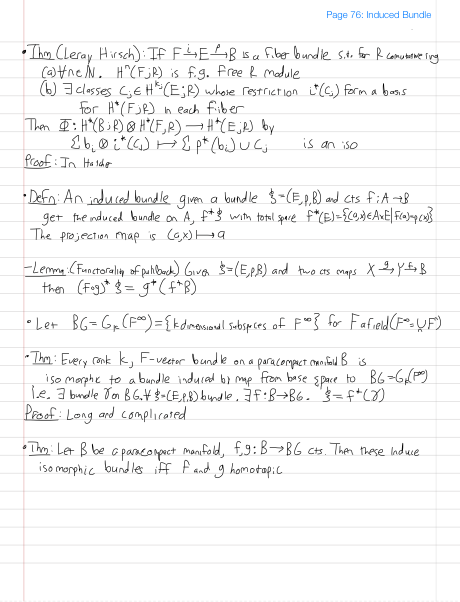 Page 76: Induced Bundle
• Thm (Leray Hirsch): If F →i E →p B is a fiber bundle s.t. for R commutative ring
(a) ∀n∈ℕ. Hⁿ(F;R) is f.g. free R module
(b) ∃ classes Cⱼ ∈ H^{kⱼ}(E;R) whose restriction i*(Cⱼ) form a basis
for H*(F;R) in each fiber
Then Φ: H*(B;R) ⊗ H*(F;R) → H*(E;R) by
Σ bᵢ ⊗ i*(Cⱼ) ↦ Σ p*(bᵢ) ∪ Cⱼ is an iso
Proof: In Hatcher
• Defn: An induced bundle given a bundle ξ=(E,p,B) and cts f: A→B
get the induced bundle on A, f*ξ with total space f*(E)={(a,x)∈A×E | f(a)=p(x)}
The projection map is (a,x) ↦ a
- Lemma: (Functoriality of pullback) Given ξ=(E,p,B) and two cts maps X →g Y →f B
then (f∘g)*ξ = g*(f*B)
• Let BG = Gₖ(F^∞) = {k dimensional subspces of F^∞} for F a field (F^∞=∪Fⁿ)
• Thm: Every rank k, F-vector bundle on a paracompact manifold B is
isomorphic to a bundle induced by map from base space to BG=Gₖ(F^∞)
i.e. ∃ bundle γ on BG. ∀ ξ=(E,p,B) bundle. ∃f: B→BG. ξ = f*(γ)
Proof: Long and complicated
• Thm: Let B be a paracompact manifold, f,g: B→BG cts. Then these induce
isomorphic bundles iff f and g homotopic